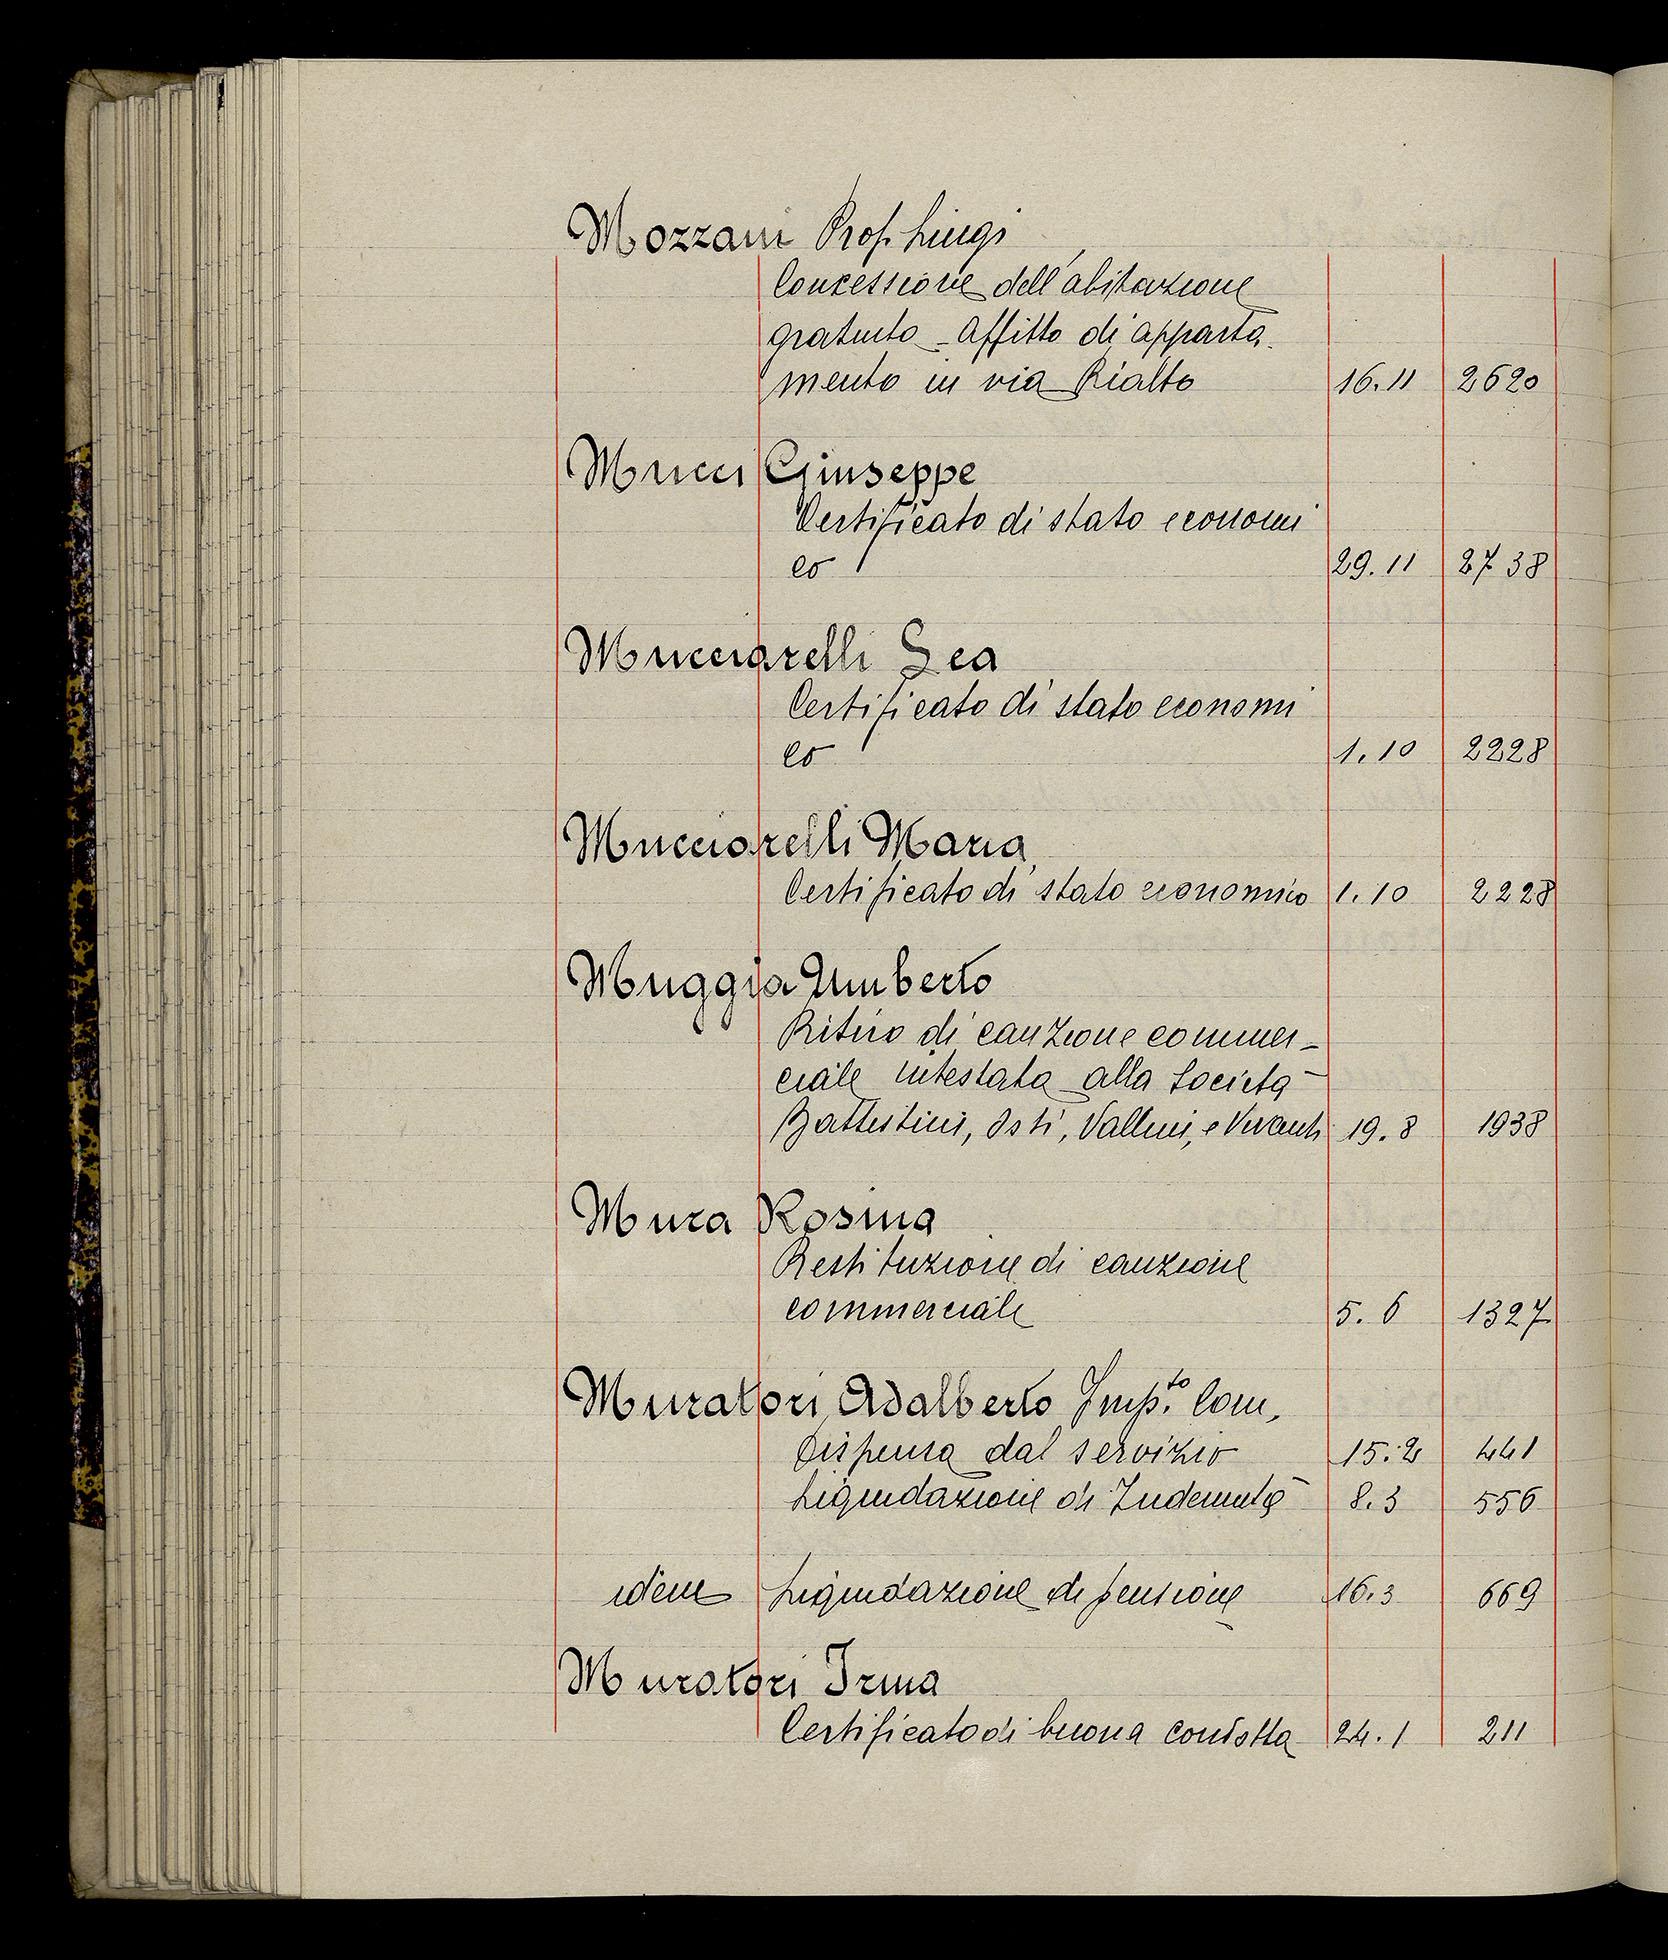 Mozzani Prof. Luigi
Concessione dell'abitazione
gratuita - Affitto di apparta-
mento in via Rialto 16.11 2620
Mucci Giuseppe
Certificato di stato economi
co 29.11 2738
Mucciarelli Lea
Certificato di stato economi
co 1.10 2228
Mucciarelli Maria
Certificato di stato economico 1.10 2228
Muggia Umberto
Ritiro di cauzione commer-
ciale intestata alla Società
Battistini, Osti, Vallini, e Vivanti 19.8 1938
Mura Rosina
Restituzione di cauzione
commerciale 5.6 1327
Muratori Adalberto Imp.to Com.
Dispensa dal servizio 15.2 441
Liquidazione di Indennità 8.3 556
idem Liquidazione di pensione 16.3 669
Muratori Irma
Certificato di buona condotta 24.1 211